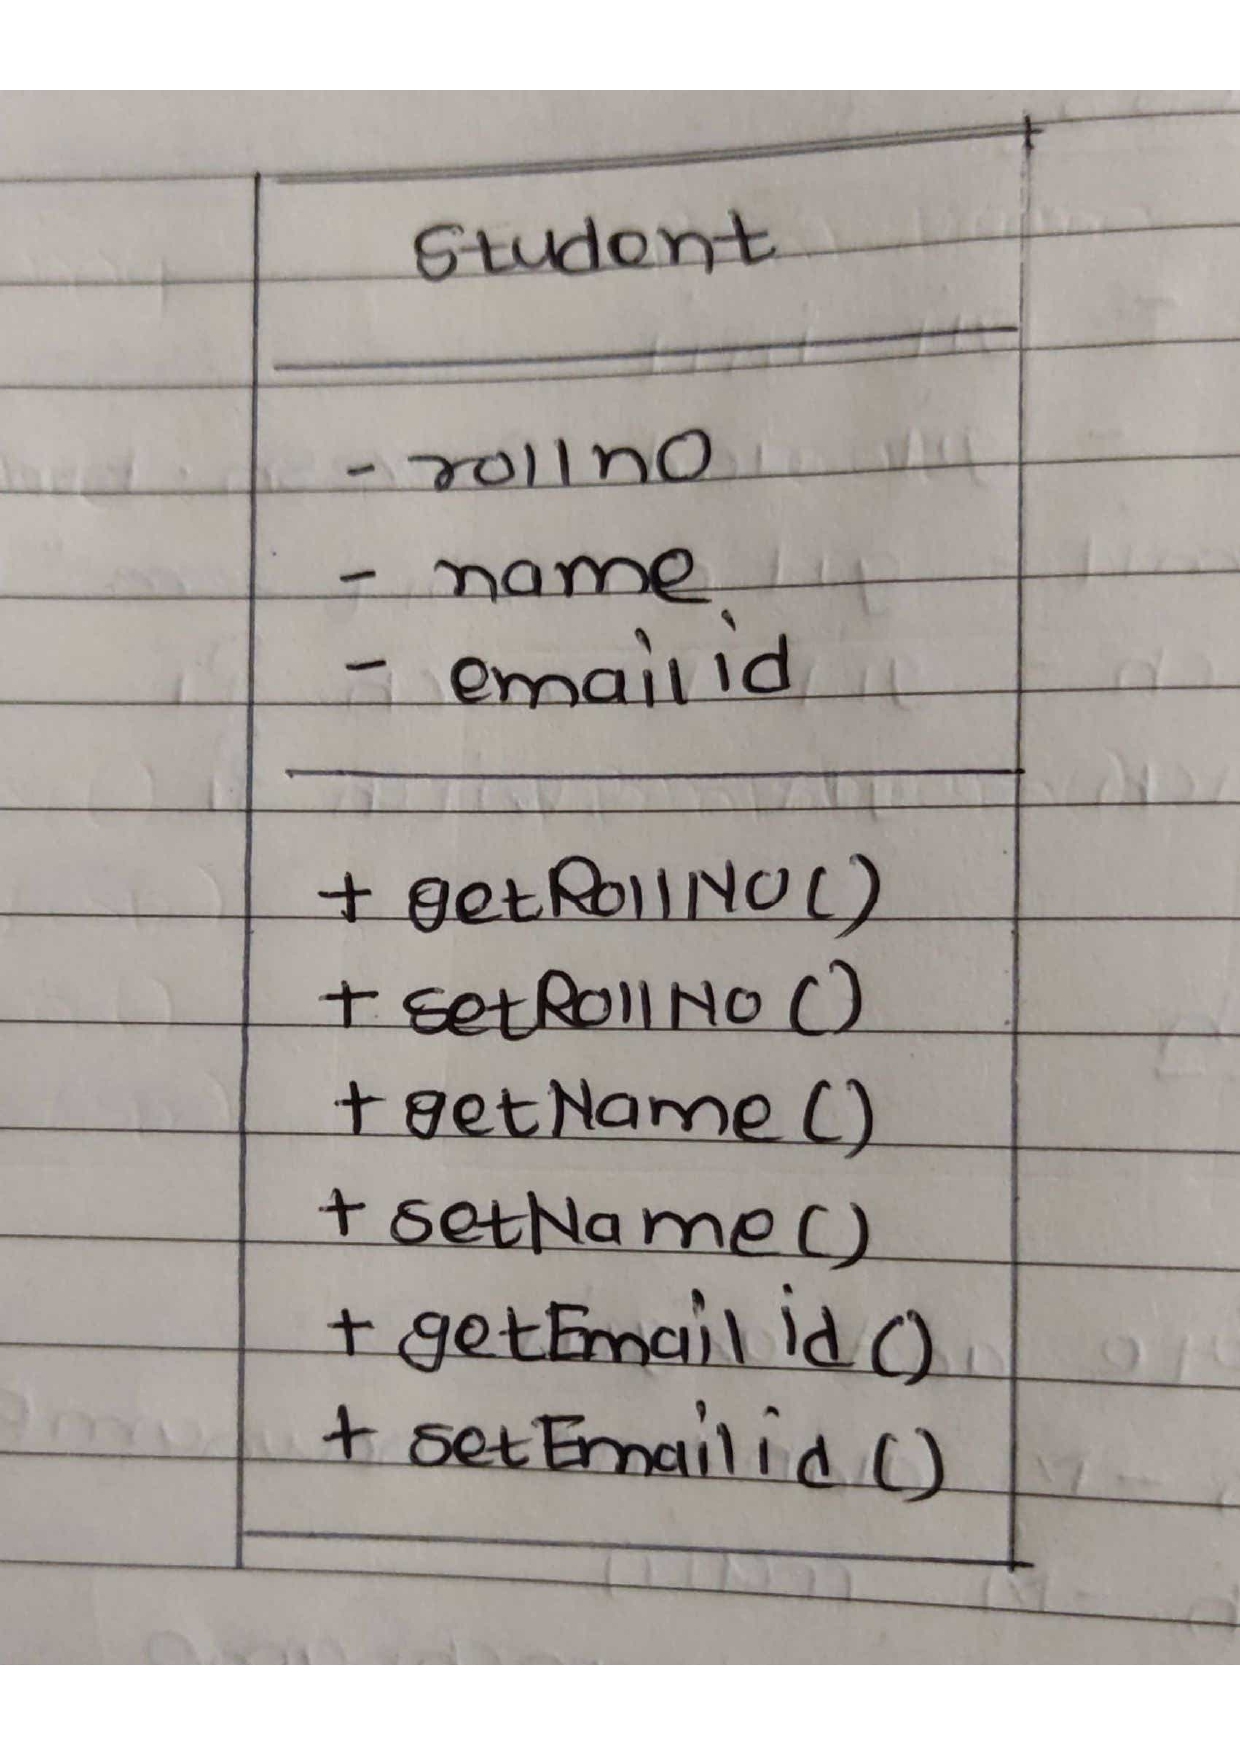 Student
- rollno
- name
- emailid
+ getRollNO()
+ setRollNo()
+ getName()
+ setName()
+ getEmail id()
+ setEmailid()